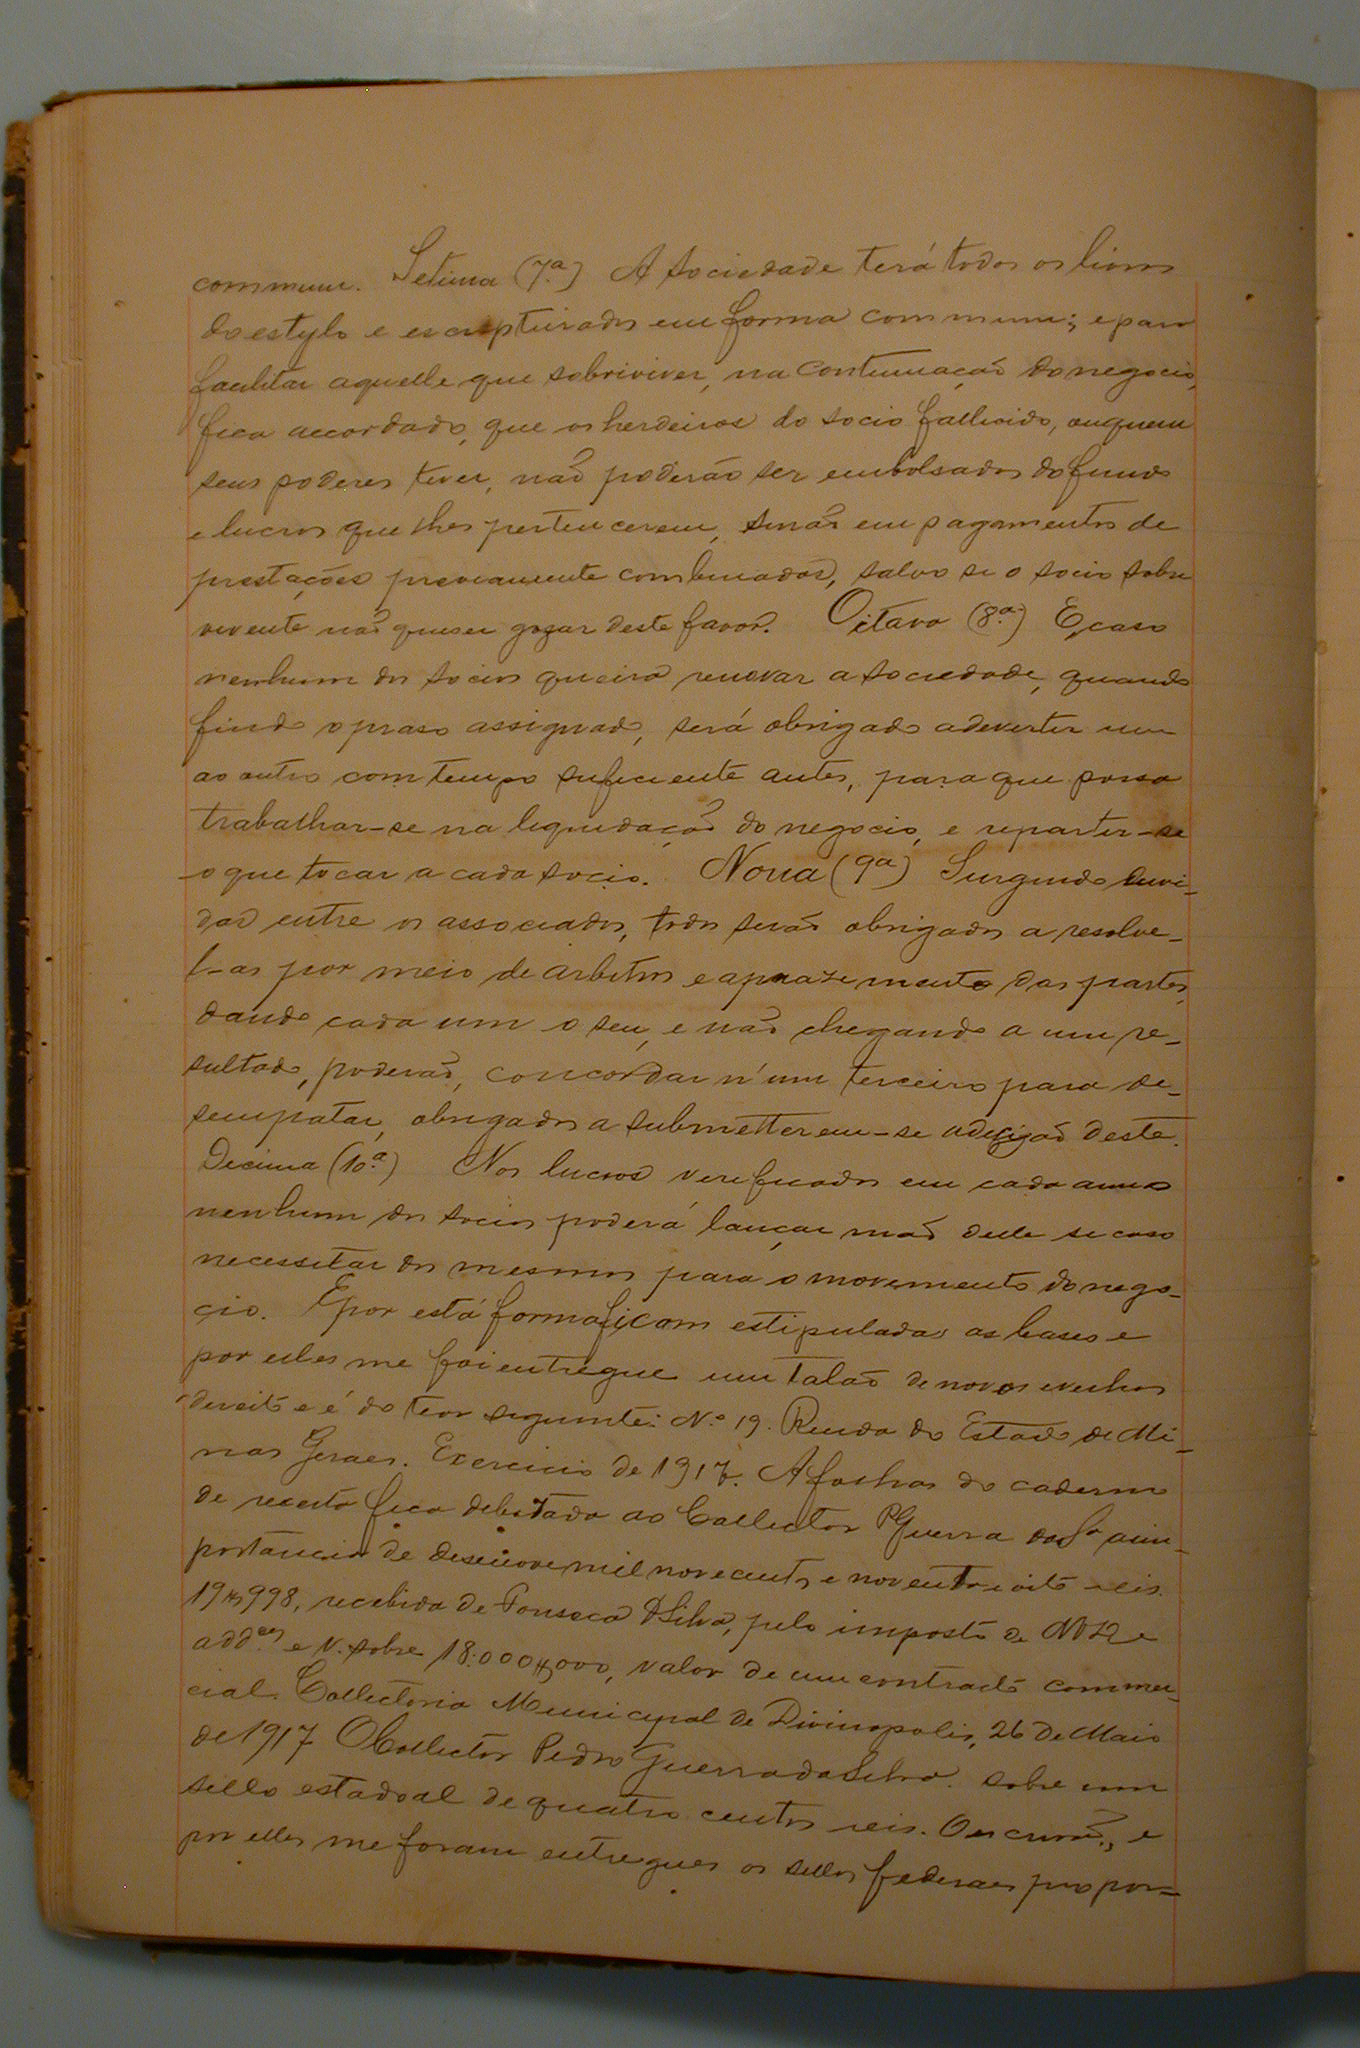 commum. Setima (7.ª) A sociedade terá todos os livros
do estylo e escripturados em forma commum; e para
facilitar aquelle que sobriviver, na continuação do negocio,
fica accordado, que os herdeiros do socio fallicido, ou quem
seus poderes tiver, não poderão ser embolsados do fundo
e lucros que lhes pertencerem, sinão em pagamentos de
prestações previamente combinadas, salvo se o socio sobre
vivente não quiser gozar deste favor. Oitava (8.ª) E, caso
nenhum dos socios queira renovar a sociedade, quando
findo o praso assignado, será obrigado adevertir um
ao outro com tempo suficiente antes, para que possa
trabalhar-se na liquidação do negocio, e repartir-se
o que tocar a cada socio. Nona (9ª) Surgindo duvi-
das entre os associados, todos serão obrigados a resolve-
l-as por meio de arbitros e aprazimento das partes,
dando cada um o seu, e não chegando a um re-
sultado, poderão, concordar n'um terceiro para de-
sempatar, obrigados a submetterem-se a decizão deste.
Decima (10.ª) Nos lucros verificados em cada anno
nenhum dos socios poderá lançar mão delle se caso
necessitar dos mesmos para o movimento do nego-
cio. E por está forma ficam estipuladas as bases e
por elles me foi entregue um talão de novos e velhos
direitos e é do teor seguinte: N.º 19. Renda do Estado de Mi-
nas Geraes. Exercicio de 1917. A folhas do caderno
de receita fica debitado ao Collector PGuerra da Sª a im-
portancia de desenove mil novecentos e noventa e oito reis.
19$998, recebida de Fonseca & Silva, pelo imposto de e
add.es e N. sobre 18:000$000, valor de um contracto commer-
cial. Collectoria Municipal de Divinopolis, 26 de Maio
de 1917 O Collector Pedro Guerra da Silva. Sobre um
sello estadoal de quatro centos reis. O escrivão, e
por elles me foram entregues os sellos federaes propor-